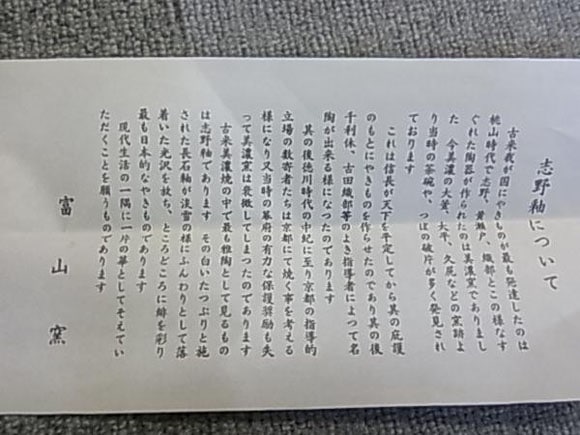 志野釉について
古来我が国にやきものが最も発達したのは
桃山時代で志野、黄瀬戸、織部とこの様なす
ぐれた陶器が作られたのは美濃窯でありまし
た　今美濃の大萱、大平、久尻などの窯跡よ
り当時の茶碗や、つぼの破片が多く発見され
ております
これは信長が天下を平定してから其の庇護
のもとにやきものを作らせたのであり其の後
千利休、古田織部等のよき指導者によって名
陶が出来る様になつたのであります
其の後徳川時代の中紀に至り京都の指導的
立場の数寄者たちは京都にて焼く事を考える
様になり又当時の幕府の有力な保護奨励も失
って美濃窯は衰微してしまったのであります
古来美濃焼の中で最も雅陶として見るもの
は志野釉であります　その白いたっぷりと施
された長石釉が淡雪の様にふんわりとして落
着いた光沢を放ち、ところどころに緋を彩り
最も日本的なやきものであります
現代生活の一隅に一片の華としてそえてい
ただくことを願うものであります
富山窯